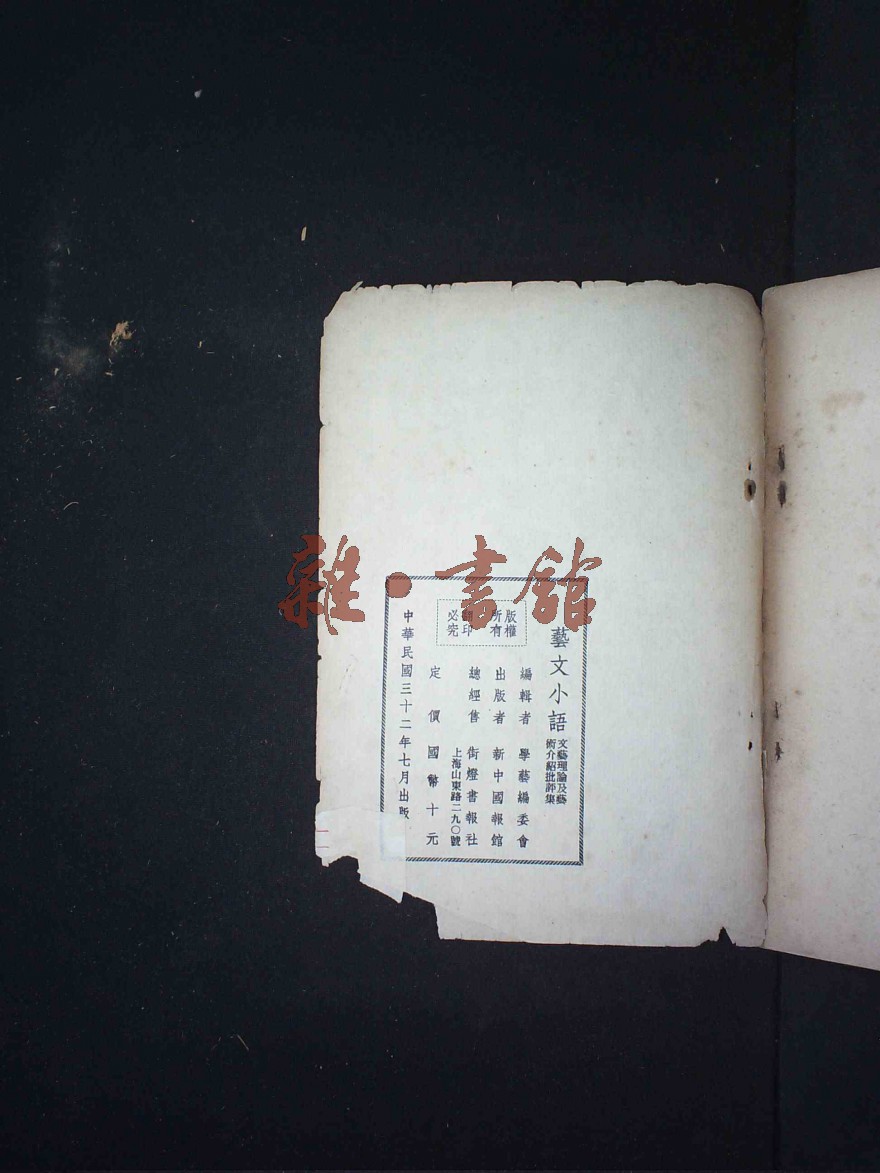 藝文小語
文藝理論及藝
術介紹批評集
版權
所有
翻印
必究
編輯者 學藝編委會
出版者 新中國報館
總經售 街燈書報社
上海山東路二九〇號
定價國幣十元
中華民國三十二年七月出版
雜·書館